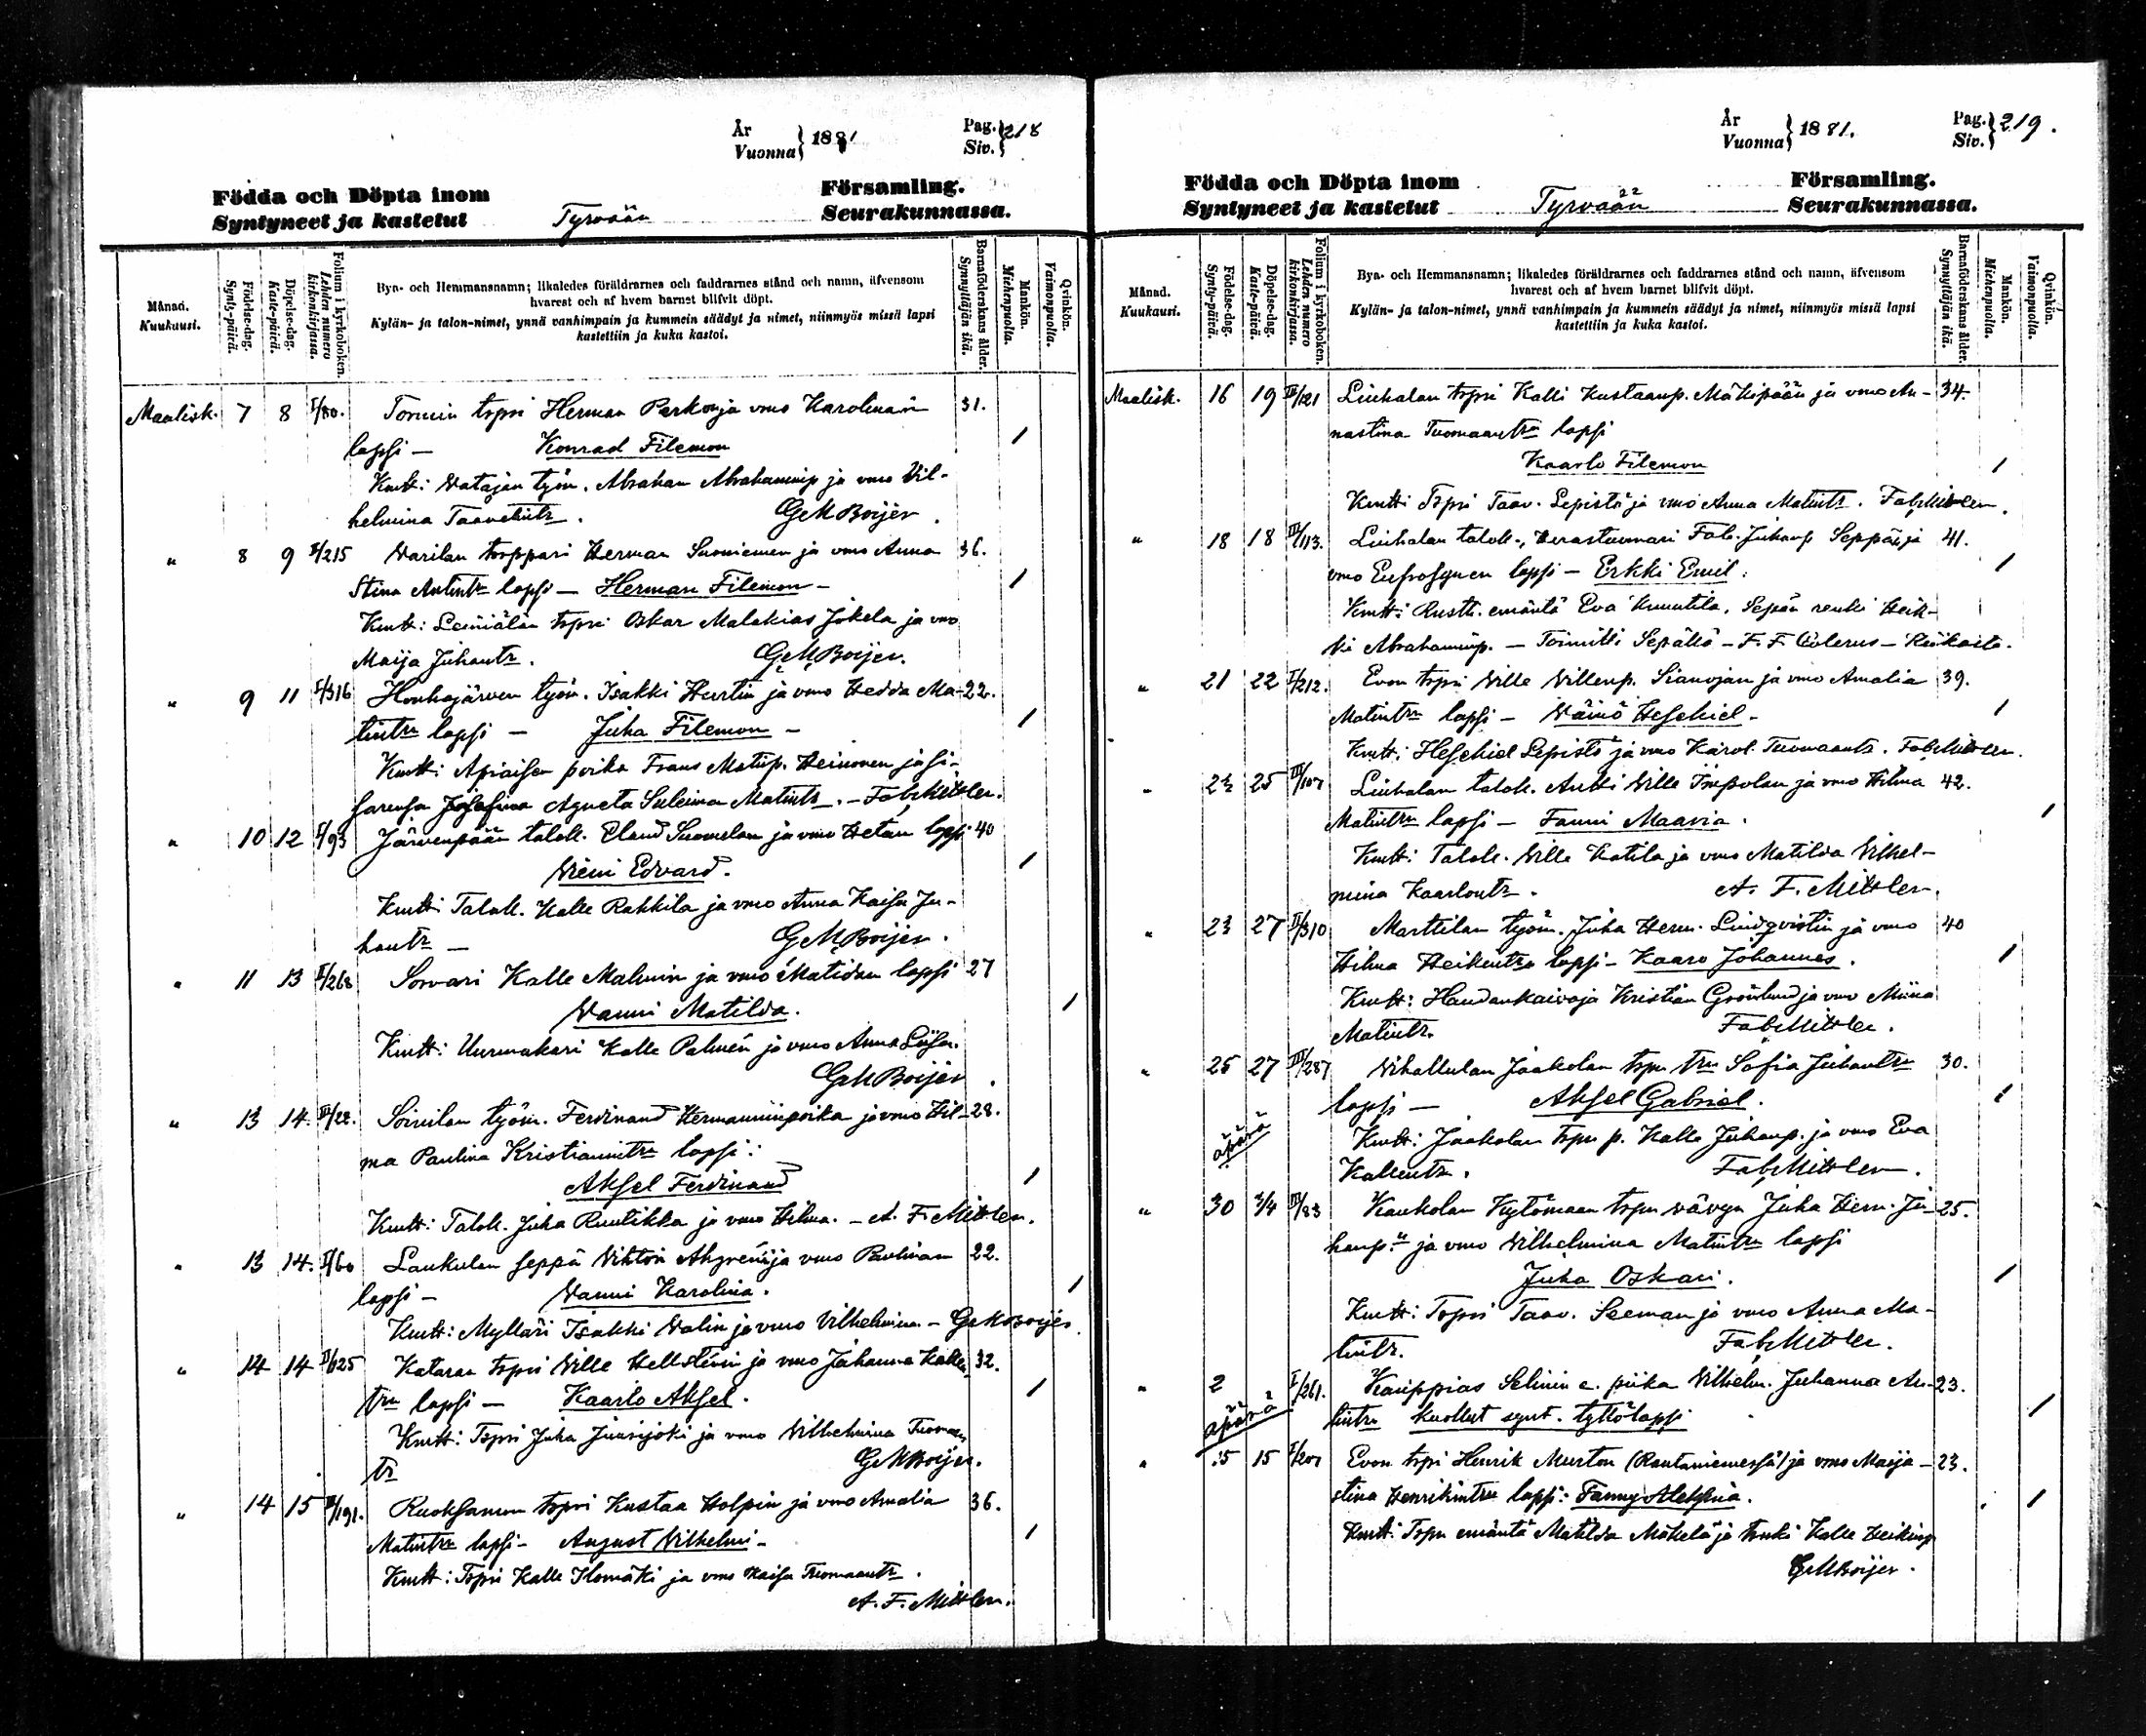 År
Vuonna } 1881
Pag.
Siv. } 218
Födda och Döpta inom Församling.
Syntyneet ja kastetut Tyrvään Seurakunnassa.
Månad.
Kuukausi.
Födelse-dag.
Synty-päivä.
Döpelse-dag.
Kaste-päivä.
Folium i kyrkoboken.
Lehden numero kirkonkirjassa.
Byn- och Hemmansnamn; likaledes föräldrarnes och faddrarnes stånd och namn, äfvensom
hvarest och af hvem barnet blifvit döpt.
Kylän- ja talon-nimet, ynnä vanhimpain ja kummein säädyt ja nimet, niinmyös missä lapsi
kastettiin ja kuka kastoi.
Barnaföderskans ålder.
Synnyttäjän ikä.
Mankön.
Miehenpuolta.
Qvinkön.
Vaimonpuolta.
Maalisk. 7 8 I/80. Tormin trpri Herman Perkon ja vmo Karolinan 31.
lapsi — Konrad Filemon 1
Kmtt: Vatajan työm. Abraham Abrahaminp ja vmo Vil-
helmina Taavetintr. GM Boijer.
" 8 9 I/215 Varilan torppari Herman Suoniemen ja vmo Anna 36.
Stina Antintr lapsi — Herman Filemon — 1
Kmtt: Leiniälän trpri Oskar Malakias Jokela ja vmo
Maija Juhantr. GM Boijer.
" 9 11 I/316 Houhajärven työm. Isakki Hurtin ja vmo Hedda Ma- 22.
tintrn lapsi — Juha Filemon — 1
Kmtt: Apiaisen poika Frans Matinp. Heinonen ja si-
sarensa Agneta Suleima Matintr. — Fab. Mittler.
" 10 12 I/93 Järvenpään talok. Eland Suomelan ja vmo Hetan lapsi 40
Vieni Edvard. 1
Kmtt: Talok. Kalle Rakkila ja vmo Anna Kaisa Ju-
hantr — GM Boijer.
" 11 13 I/268 Sorvari Kalle Malmin ja vmo Matildan lapsi 27
Vanni Matilda. 1
Kmtt: Uurmakari Kalle Palmén ja vmo Anna Liisa.
GM Boijer.
" 13 14. III/22. Soinilan työm. Ferdinand Hermanninpoika ja vmo Hil- 28.
ma Paulina Kristianintrn lapsi:
Aksel Ferdinand 1
Kmtt: Talok. Juha Ruutikka ja vmo Hilma. — A. F. Mittler.
" 13 14. I/60 Laukulan seppä Viktor Ahgrenin ja vmo Paulinan 22.
lapsi — Vanni Karolina. 1
Kmtt: Mylläri Isakki Valin ja vmo Vilhelmina — GM Boijer.
" 14 14 I/625 Kataran trpri Ville Hellstenin ja vmo Johanna Kallen 32.
trn lapsi — Kaarlo Aksel. 1
Kmtt: Trpri Juha Juusijoki ja vmo Vilhelmina Tuoman
tr GM Boijer.
" 14 15 III/191. Ruoksamon trpri Kustaa Holpin ja vmo Amalia 36.
Matintrn lapsi — August Vilhelmi — 1
Kmtt: Trpri Kalle Ilomäki ja vmo Kaisa Tuomaantr.
A. F. Mittler.
År
Vuonna } 1881.
Pag.
Siv. } 219.
Födda och Döpta inom Församling.
Syntyneet ja kastetut Tyrvään Seurakunnassa.
Månad.
Kuukausi.
Födelse-dag.
Synty-päivä.
Döpelse-dag.
Kaste-päivä.
Folium i kyrkoboken.
Lehden numero kirkonkirjassa.
Byn- och Hemmansnamn; likaledes föräldrarnes och faddrarnes stånd och namn, äfvensom
hvarest och af hvem barnet blifvit döpt.
Kylän- ja talon-nimet, ynnä vanhimpain ja kummein säädyt ja nimet, niinmyös missä lapsi
kastettiin ja kuka kastoi.
Barnaföderskans ålder.
Synnyttäjän ikä.
Mankön.
Miehenpuolta.
Qvinkön.
Vaimonpuolta.
Maalisk. 16 19 III/121 Liuhalan trpri Kalli Kustaanp. Mäkipään ja vmo An- 34.
nastina Tuomaantrn lapsi
Kaarlo Filemon 1
Kmtt: Trpri Taav. Lepistö ja vmo Anna Matintr. Fab. Mittler.
" 18 18 III/113. Liuhalan talok., Herastuomari Fab. Juhanp Seppän ja 41.
vmo Eufrosynen lapsi — Erkki Emil. 1
Kmtt: Rustt. emäntä Eva Kuuntila, Sepän renki Heik-
ki Abrahaminp. — Toimitti Sepällä — F. F. — Hätäkaste.
" 21 22 I/212. Evon trpri Ville Villenp. Sianojan ja vmo Amalia 39.
Matintrn lapsi — Väinö Hesekiel — 1
Kmtt: Hesekiel Lepistö ja vmo Karol. Tuomaantr. Fab. Mittler.
" 22 25 III/107 Liuhalan talok. Antti Ville Impolan ja vmo Hilma 42.
Matintrn lapsi — Fanni Maaria. 1
Kmtt: Talok. Ville Katila ja vmo Matilda Vilhel-
mina Kaarlontr. A. F. Mittler.
" 23 27 II/310 Marttilan työm. Juha Herm. Lindqvistin ja vmo 40
Hilma Heikintrn lapsi — Kaaro Johannes. 1
Kmtt: Haudankaivaja Kristian Grönlund ja vmo Miina
Matintr. Fab. Mittler.
" 25 27 III/287 Vihattulan Jaakolan trpn trn Sofia Juhantrn 30.
lapsi — Aksel Gabriel. 1
äpärä Kmtt: Jaakolan trpn p. Kalle Juhanp. ja vmo Eva
Kallentr. Fab. Mittler.
" 30 3/4 III/83 Kaukolan Kytömaan trpn vävyn Juha Herm. Ju- 25.
hanp:n ja vmo Vilhelmina Matintrn lapsi
Juha Oskari. 1
Kmtt: Trpri Taav. Seeman ja vmo Anna Ma-
tintr. Fab. Mittler.
" 2 I/261. Kauppias Selinin e. piika Vilhelm. Juhanna An- 23.
äpärä tintrn kuollut synt. tyttölapsi 1
" 15 15 I/207 Evon trpri Henrik Murton (Rautaniemessä) ja vmo Maija- 23.
stina Henrikintrn lapsi: Fanny Aleksia. 1
Kmtt: Trpn emäntä Matilda Mäkelä ja renki Kalle Heikinp
GM Boijer.